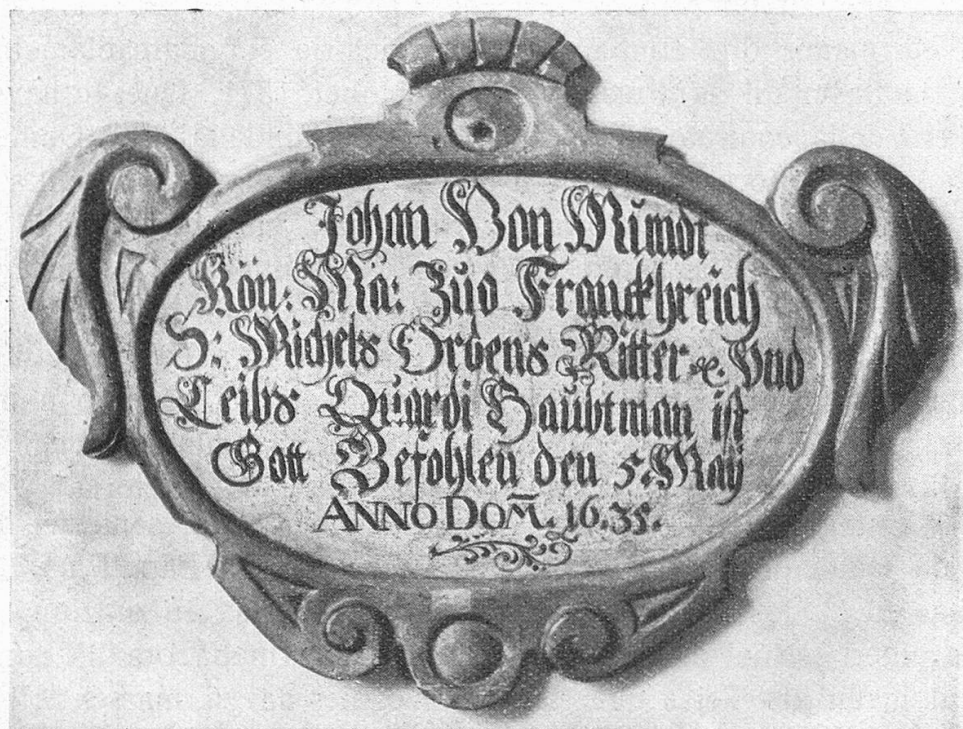 Johan Von Mŭmdt
Kön: Ma: Zŭo Franckhreich
S: Michels Ordens Ritter ⁊c. Vnd
Leibs Qŭardi Haŭbtman ist
Gott Befohlen den 5. Maÿ
ANNO DOM̅. 16.35.